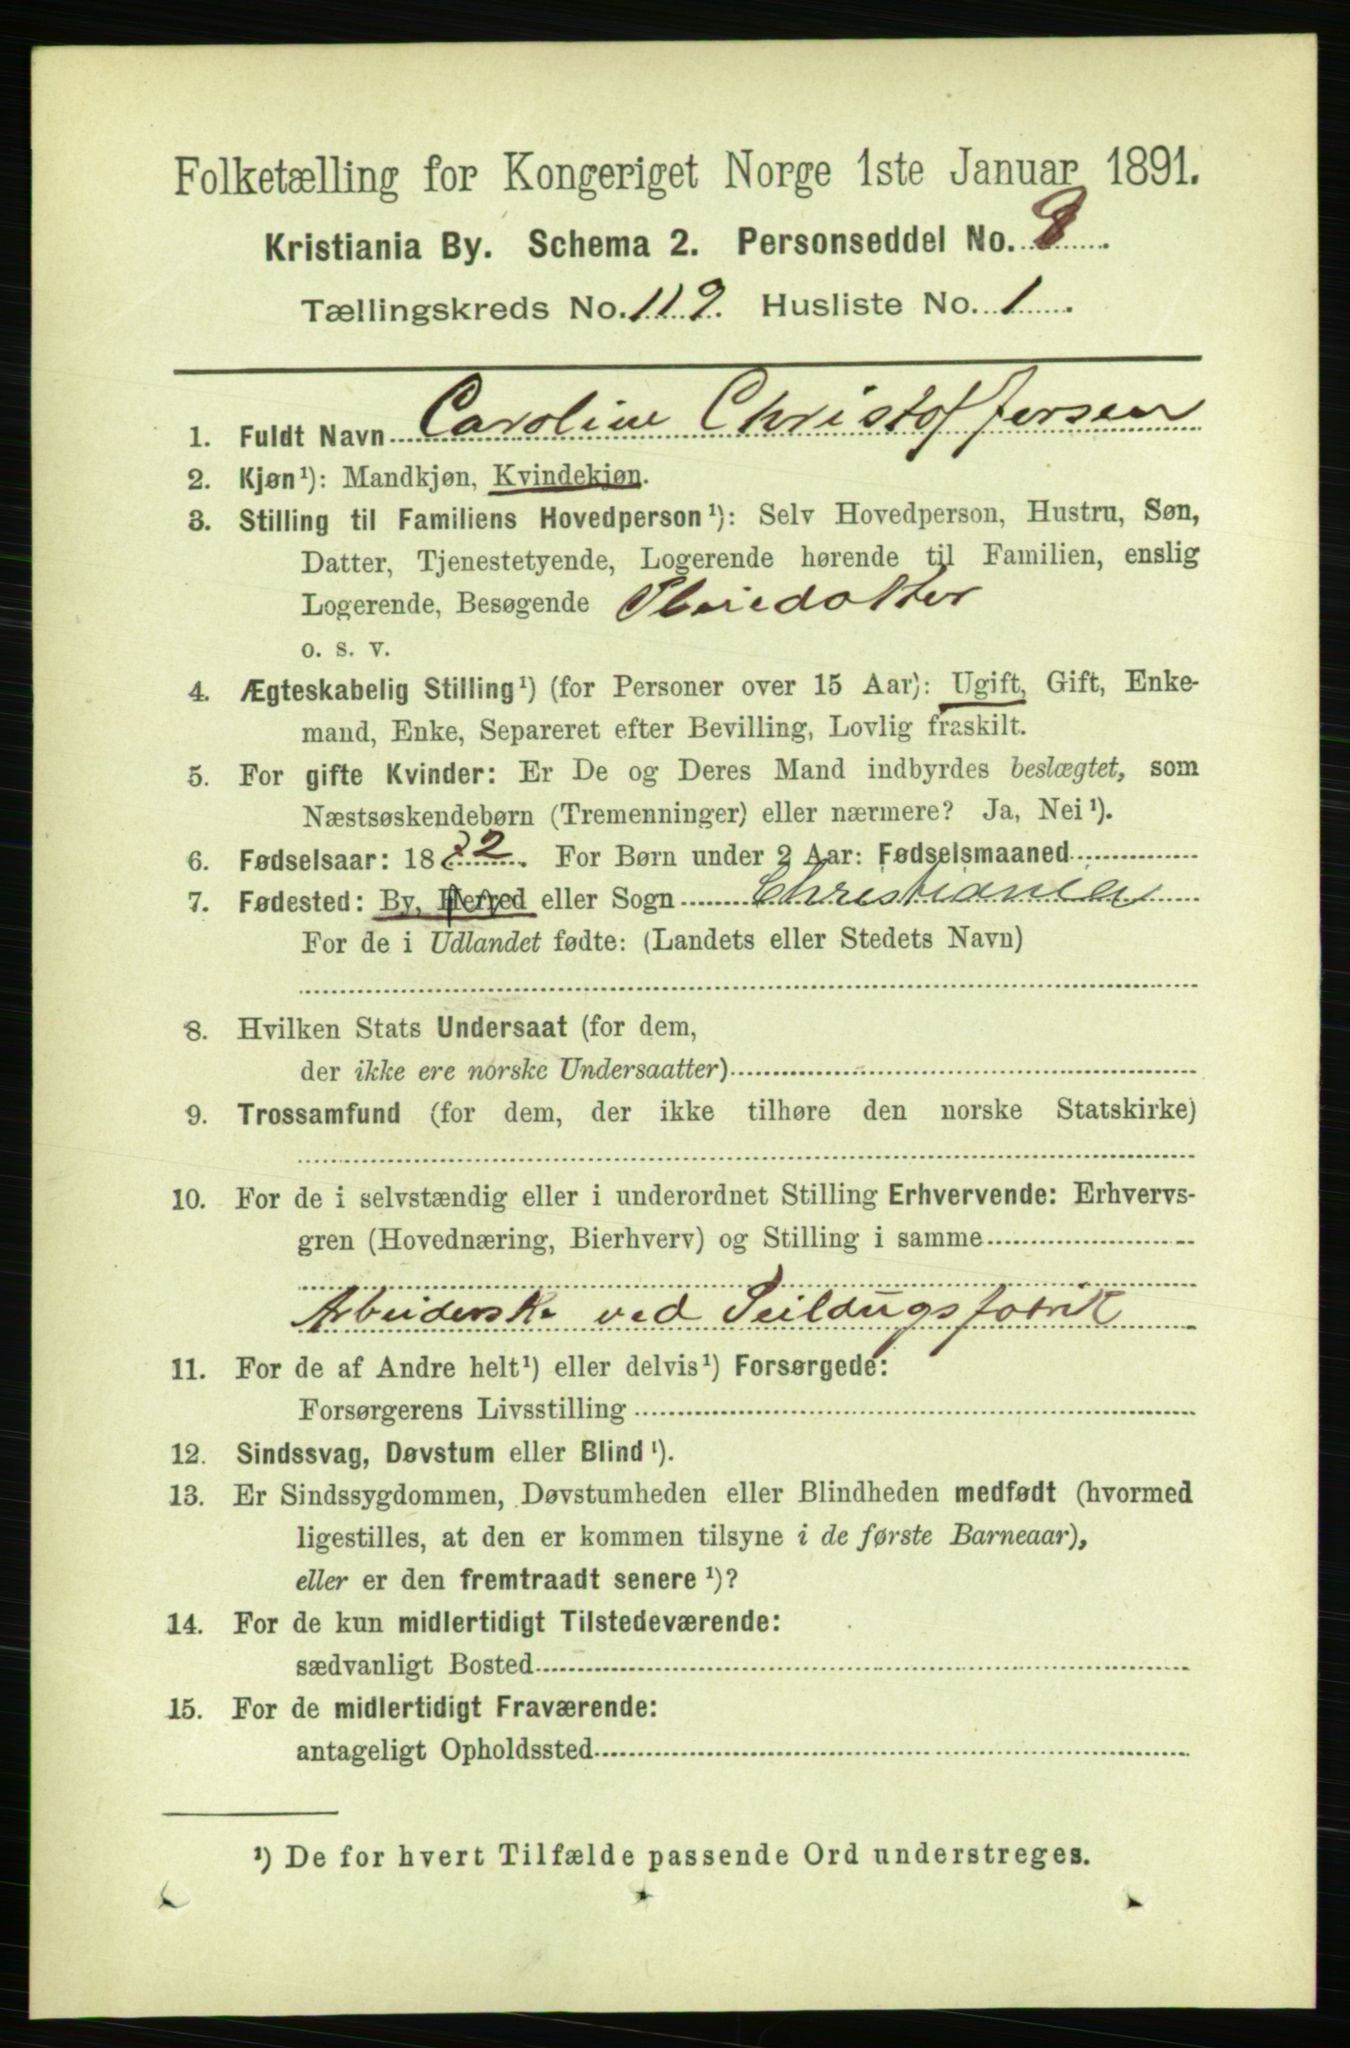 Folketælling for Kongeriget Norge 1ste Januar 1891.
Kristiania By. Schema 2. Personseddel No. 8
Tællingskreds No. 119. Husliste No. 1
1. Fuldt Navn Caroline Christoffersen
2. Kjøn¹): Mandkjøn, Kvindekjøn.
3. Stilling til Familiens Hovedperson¹): Selv Hovedperson, Hustru, Søn,
Datter, Tjenestetyende, Logerende hørende til Familien, enslig
Logerende, Besøgende Pleiedatter
o. s. v.
4. Ægteskabelig Stilling¹) (for Personer over 15 Aar): Ugift, Gift, Enke-
mand, Enke, Separeret efter Bevilling, Lovlig fraskilt.
5. For gifte Kvinder: Er De og Deres Mand indbyrdes beslægtet, som
Næstsøskendebørn (Tremenninger) eller nærmere? Ja, Nei¹).
6. Fødselsaar: 1872. For Børn under 2 Aar: Fødselsmaaned
7. Fødested: By, Herred eller Sogn Christiania
For de i Udlandet fødte: (Landets eller Stedets Navn)
8. Hvilken Stats Undersaat (for dem,
der ikke ere norske Undersaatter)
9. Trossamfund (for dem, der ikke tilhøre den norske Statskirke)
10. For de i selvstændig eller i underordnet Stilling Erhvervende: Erhvervs-
gren (Hovednæring, Bierhverv) og Stilling i samme
Arbeiderske ved Seildugsfabrik
11. For de af Andre helt¹) eller delvis¹) Forsørgede:
Forsørgerens Livsstilling
12. Sindssvag, Døvstum eller Blind¹).
13. Er Sindssygdommen, Døvstumheden eller Blindheden medfødt (hvormed
ligestilles, at den er kommen tilsyne i de første Barneaar),
eller er den fremtraadt senere¹)?
14. For de kun midlertidigt Tilstedeværende:
sædvanligt Bosted
15. For de midlertidigt Fraværende:
antageligt Opholdssted
¹) De for hvert Tilfælde passende Ord understreges.